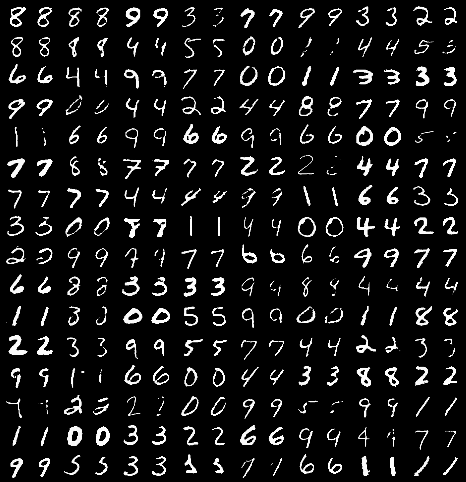 8 8 8 8 9 9 3 3 7 7 9 9 3 3 2 2
8 8 8 8 4 4 5 5 0 0 1 1 4 4 5 5
6 6 4 4 9 9 7 7 0 0 1 1 3 3 3 3
9 9 0 0 4 4 2 2 4 4 8 8 7 7 9 9
1 1 6 6 9 9 6 6 9 9 6 6 0 0 5 5
7 7 8 8 7 7 7 7 2 2 2 2 4 4 7 7
7 7 7 7 4 4 4 4 9 9 1 1 6 6 3 3
3 3 0 0 8 8 1 1 4 4 0 0 4 4 2 2
2 2 9 9 4 4 7 7 6 6 6 6 9 9 7 7
6 6 8 8 3 3 3 3 9 9 8 8 4 4 4 4
1 1 3 3 0 0 5 5 9 9 0 0 1 1 8 8
2 2 3 3 9 9 5 5 7 7 4 4 2 2 3 3
9 9 1 1 6 6 0 0 4 4 3 3 8 8 2 2
4 4 2 2 2 2 0 0 9 9 5 5 9 9 1 1
1 1 0 0 3 3 2 2 6 6 9 9 4 4 7 7
9 9 5 5 3 3 1 1 7 7 6 6 1 1 1 1